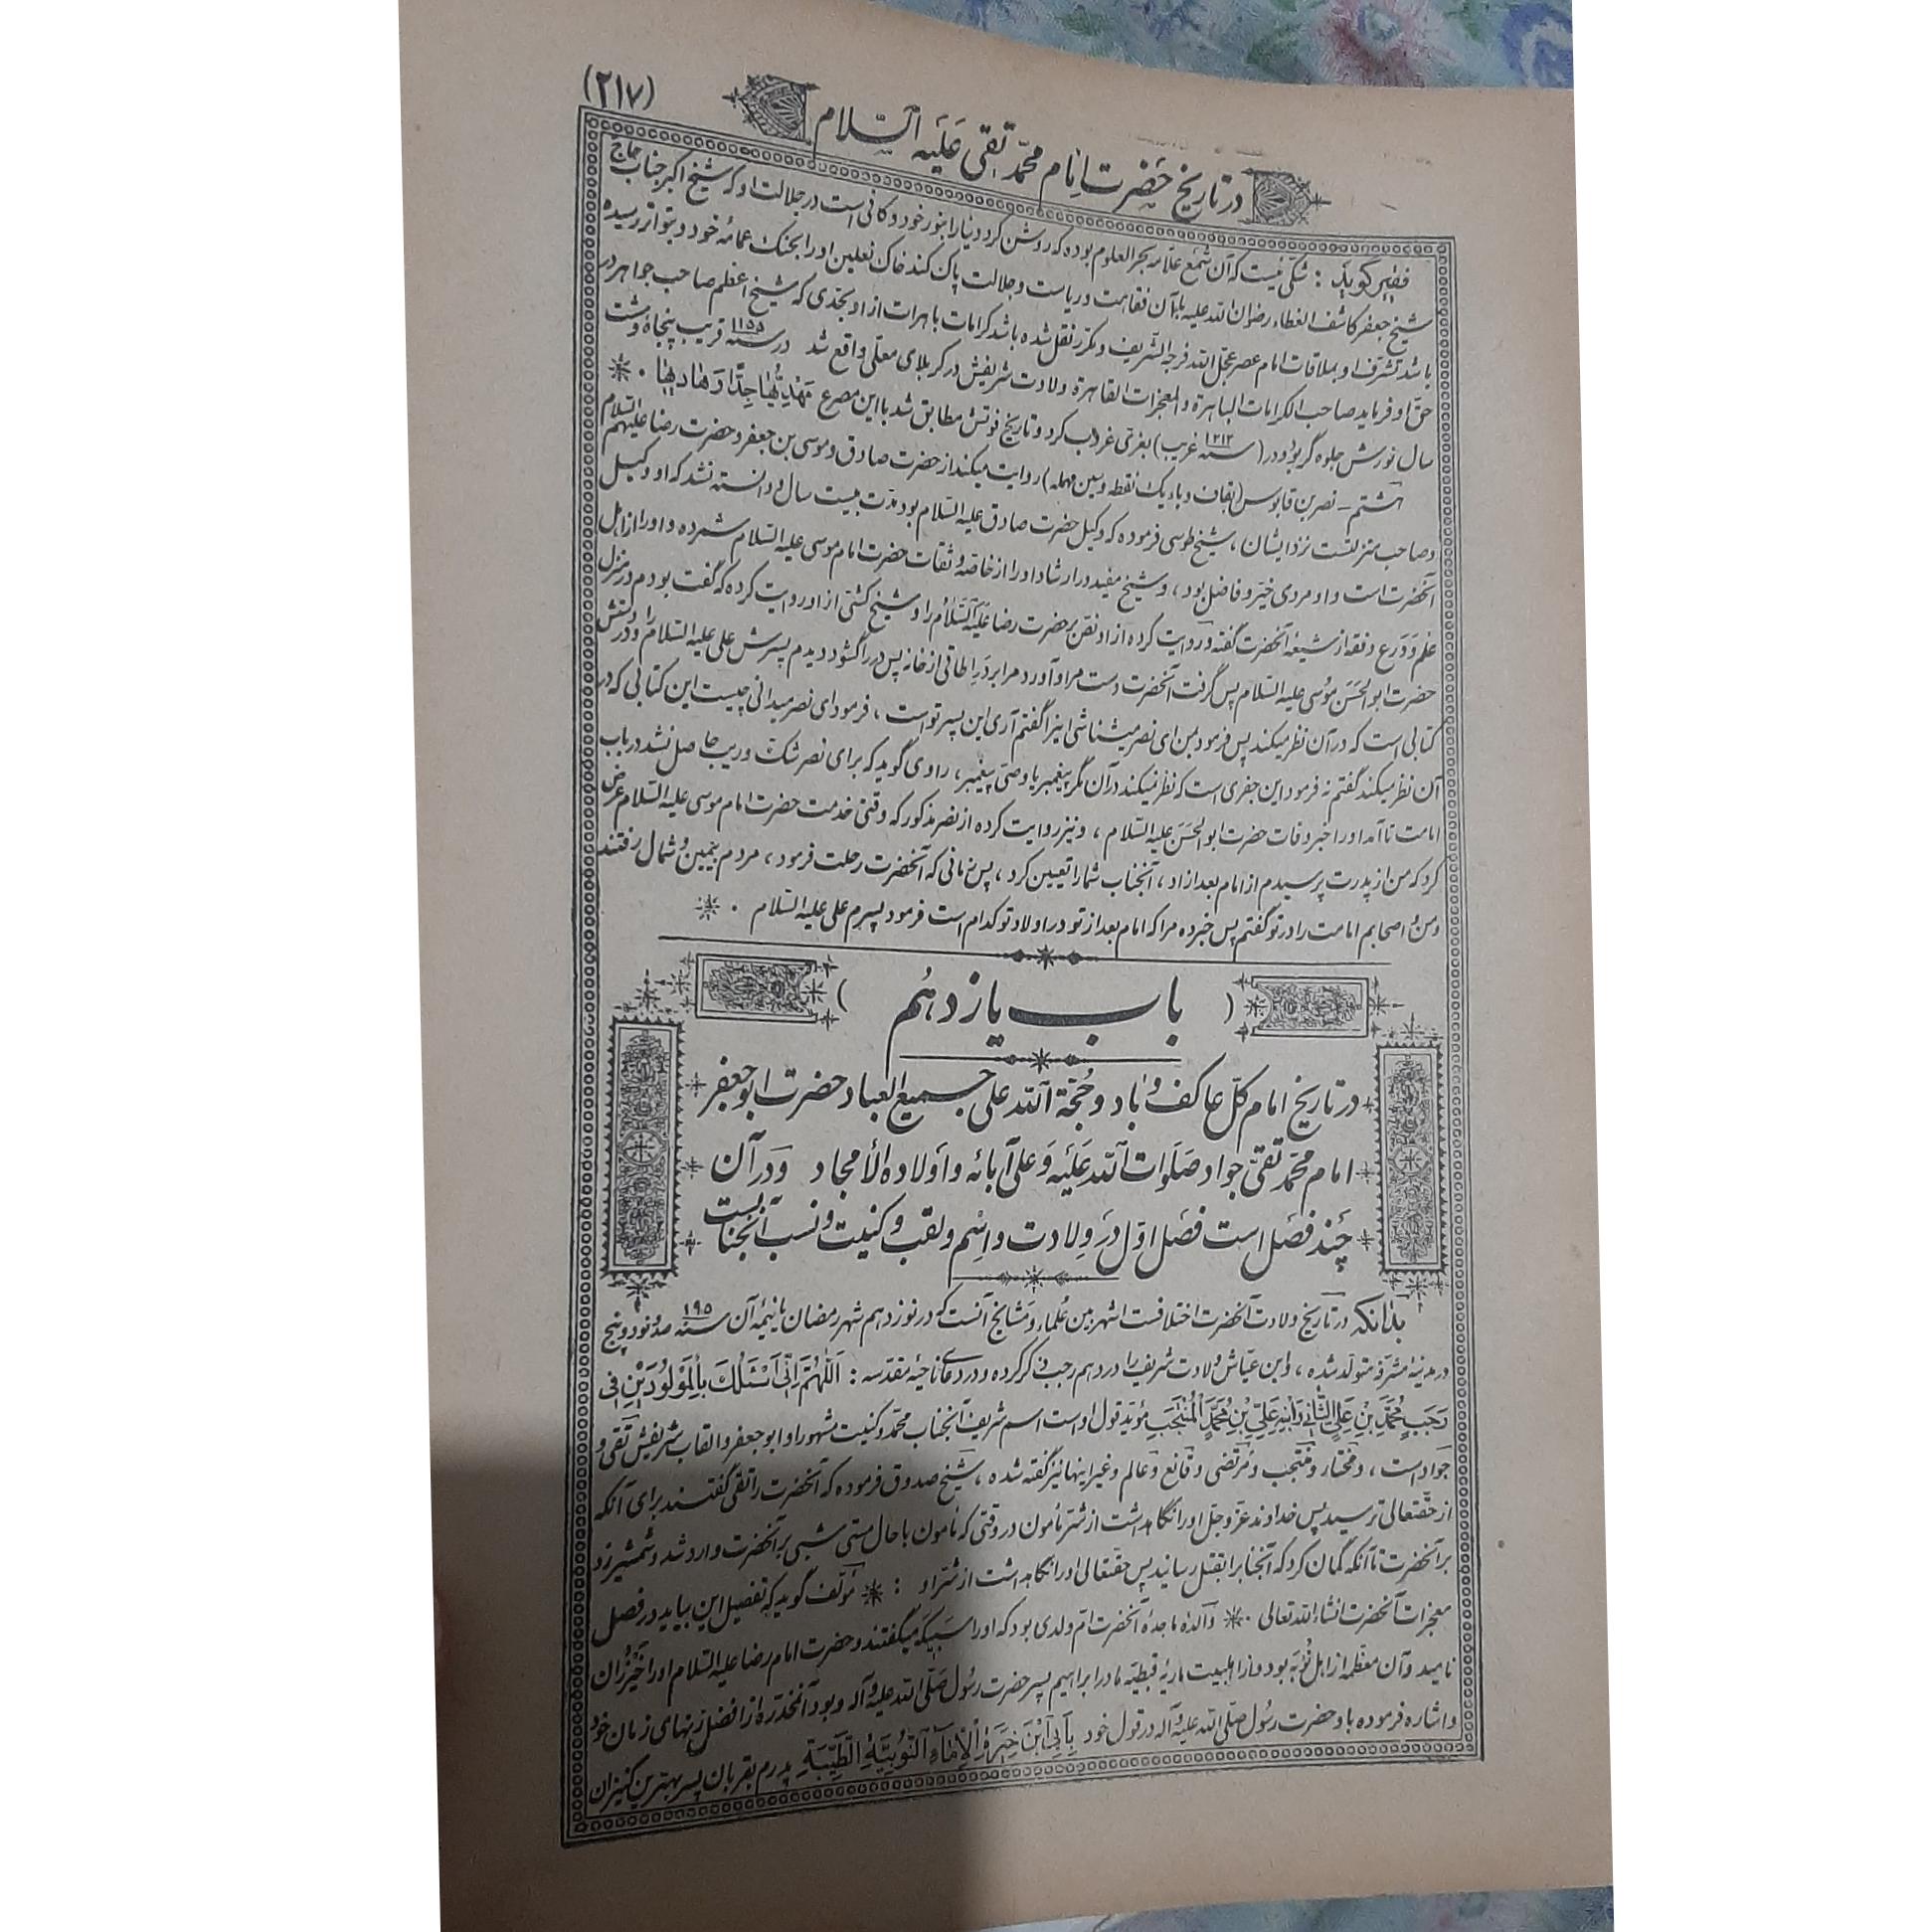 (٢١٧)
در تاریخ حضرت امام محمّد تقی علیه السّلام
فقیر گوید : شکّی نیست که آن شمع علّامه بحر العلوم بوده که روشن کرد دنیا را بنور خود و کافی است در جلالت او که شیخ اکبر جناب حاج
شیخ جعفر کاشف الغطاء رضوان الله علیه با آن فقاهت و ریاست و جلالت پاک کند خاک نعلین او را بحنک عمامهٔ خود و بتواتر رسیده
باشد تشرّف او بملاقات امام عصر عجّل الله فرجه الشّریف و مکرّر نقل شده باشد کرامات باهرات از او بحدّی که شیخ اعظم صاحب جواهر در
حقّ او فرماید صاحب الکرامات الباهرة و المعجزات القاهرة ولادت شریفش در کربلای معلّی واقع شد در سنه ١١٥٥ قریب پنجاه و شت
سال نورش جلوه گر بود و در (سنه ١٢١٢ غریب) بغریّ غروب کرد و تاریخ فوتش مطابق شد با این مصرع مَهْدِیُّها جِدّاً وَ هٰادیهٰا ٠
هشتم ـ نصر بن قابوس (بقاف و باء یک نقطه و سین مهمله) روایت میکند از حضرت صادق و موسی بن جعفر و حضرت رضا علیهم السّلام
و صاحب منزلتست نزد ایشان ، شیخ طوسی فرموده که وکیل حضرت صادق علیه السّلام بود مدّت بیست سال و دانسته نشد که او وکیل
آنحضرت است و او مردی خیّر و فاضل بود ، و شیخ مفید در ارشاد او را از خاصّه و ثقات حضرت امام موسی علیه السّلام شمرده و او را از اهل
علم و ورع و فقه از شیعهٔ آنحضرت گفته و روایت کرده از او نصّ بر حضرت رضا علیه السّلام را و شیخ کشّی از او روایت کرده که گفت بودم در منزل
حضرت ابوالحسن موسی علیه السّلام پس گرفت آنحضرت دست مرا و آورد مرا بر در اطاقی از خانه پس در را گشود دیدم پسرش علی علیه السّلام را و در دستش
کتابی است که در آن نظر میکند پس فرمود بمن ای نصر میشناسی اینرا گفتم آری این پسر تو است ، فرمود ای نصر میدانی چیست این کتابی که در
آن نظر میکند گفتم نه فرمود این جفری است که نظر نمیکند در آن مگر پیغمبر یا وصیّ پیغمبر ، راوی گوید که برای نصر شک و ریب حاصل نشد در باب
امامت تا آمد او را خبر وفات حضرت ابوالحسن علیه السّلام ، و نیز روایت کرده از نصر مذکور که وقتی خدمت حضرت امام موسی علیه السّلام عرض
کرد که من از پدرت پرسیدم از امام بعد از او ، آنجناب شما را تعیین کرد ، پس زمانی که آنحضرت رحلت فرمود ، مردم بیمین و شمال رفتند
و من و اصحابم امامت را در تو گفتیم پس خبر ده مرا که امام بعد از تو در اولاد تو کدام است فرمود پسرم علی علیه السّلام ٠
( باب یازدهم )
در تاریخ امام کلّ عاکف و باد و حجّة الله علی جمیع العباد حضرت ابو جعفر
امام محمّد تقیّ جواد صلوات الله علیه و علی آبائه و اولاده الأمجاد و در آن
چند فصل است فصل اوّل در ولادت و اسم و لقب و کنیت و نسب آنجناب است
بدانکه در تاریخ ولادت آنحضرت اختلافست اشهر بین علماء و مشایخ آنست که در نوزدهم شهر رمضان یا نیمهٔ آن سنه ١٩٥ صد و نود و پنج
در مدینهٔ مشرّفه متولّد شده ، و ابن عیّاش ولادت شریف را در دهم رجب ذکر کرده و در دعای ناحیهٔ مقدّسه : اَللّهُمَّ اِنّی اَسْئَلُكَ بِالْمَوْلُودَیْنِ فی
رَجَبٍ مُحَمَّدِ بْنِ عَلِیٍّ الثّانی وَ ابْنِهِ عَلِیِّ بْنِ مُحَمَّدٍ الْمُنْتَجَبِ مؤیّد قول او است اسم شریف آنجناب محمّد و کنیت مشهور او ابو جعفر و القاب شریفش تقی و
جواد است ، و مختار و منتجب و مرتضی و قانع و عالم و غیر اینها نیز گفته شده ، شیخ صدوق فرموده که آنحضرت را تقی گفتند برای آنکه
از حقتعالی ترسید پس خداوند عزّ و جلّ او را نگاهداشت از شرّ مأمون در وقتی که مأمون با حال مستی شبی بر آنحضرت وارد شد و شمشیر زد
بر آنحضرت تا آنکه گمان کرد که آنجنابرا بقتل رسانید پس حقتعالی او را نگاهداشت از شرّ او : مؤلّف گوید که تفصیل این بیاید در فصل
معجزات آنحضرت انشاء الله تعالی ٠ والدهٔ ماجدهٔ آنحضرت امّ ولدی بود که او را سبیکه میگفتند و حضرت امام رضا علیه السلام او را خیزران
نامید و آن معظّمه از اهل نوبه بود و از اهلبیت ماریهٔ قبطیّه مادر ابراهیم پسر حضرت رسول صلّی الله علیه و آله و بود آنمخدّره از افضل زنهای زمان خود
و اشاره فرموده باو حضرت رسول صلّی الله علیه و آله در قول خود بِاَبِی ابْنُ خِیَرَةِ الْاِمٰاءِ النُّوبِیَّةِ الطَّیِّبَةِ پدرم بقربان پسر بهترین کنیزان